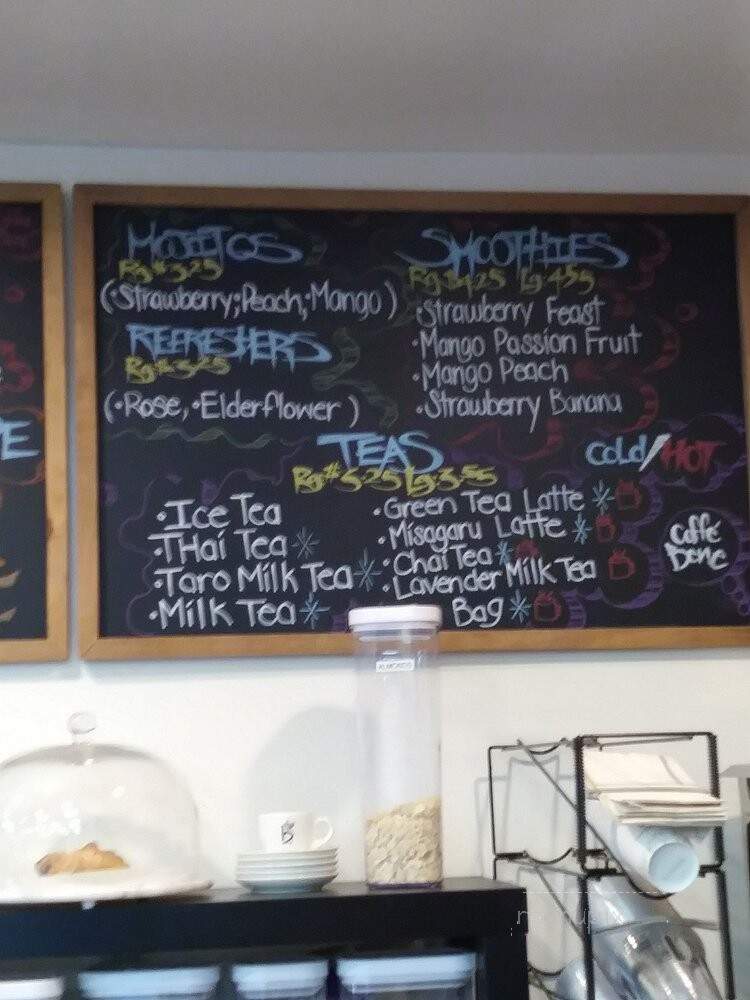 MOJITOS
Rg $3.25
(·Strawberry; Peach; ·Mango)
REFRESHERS
(·Rose, ·Elderflower)
SMOOTHIES
Rg $4.25 Lg 4.55
·Strawberry Feast
·Mango Passion Fruit
·Mango Peach
·Strawberry Banana
TEAS
Cold/HOT
·Ice Tea
·THai Tea
·Taro Milk Tea
·Milk Tea
·Green Tea Latte
·Misagaru Latte
·Chai Tea
·Lavender Milk Tea
Bag
Caffé
Done
PE
ALMONDS
B